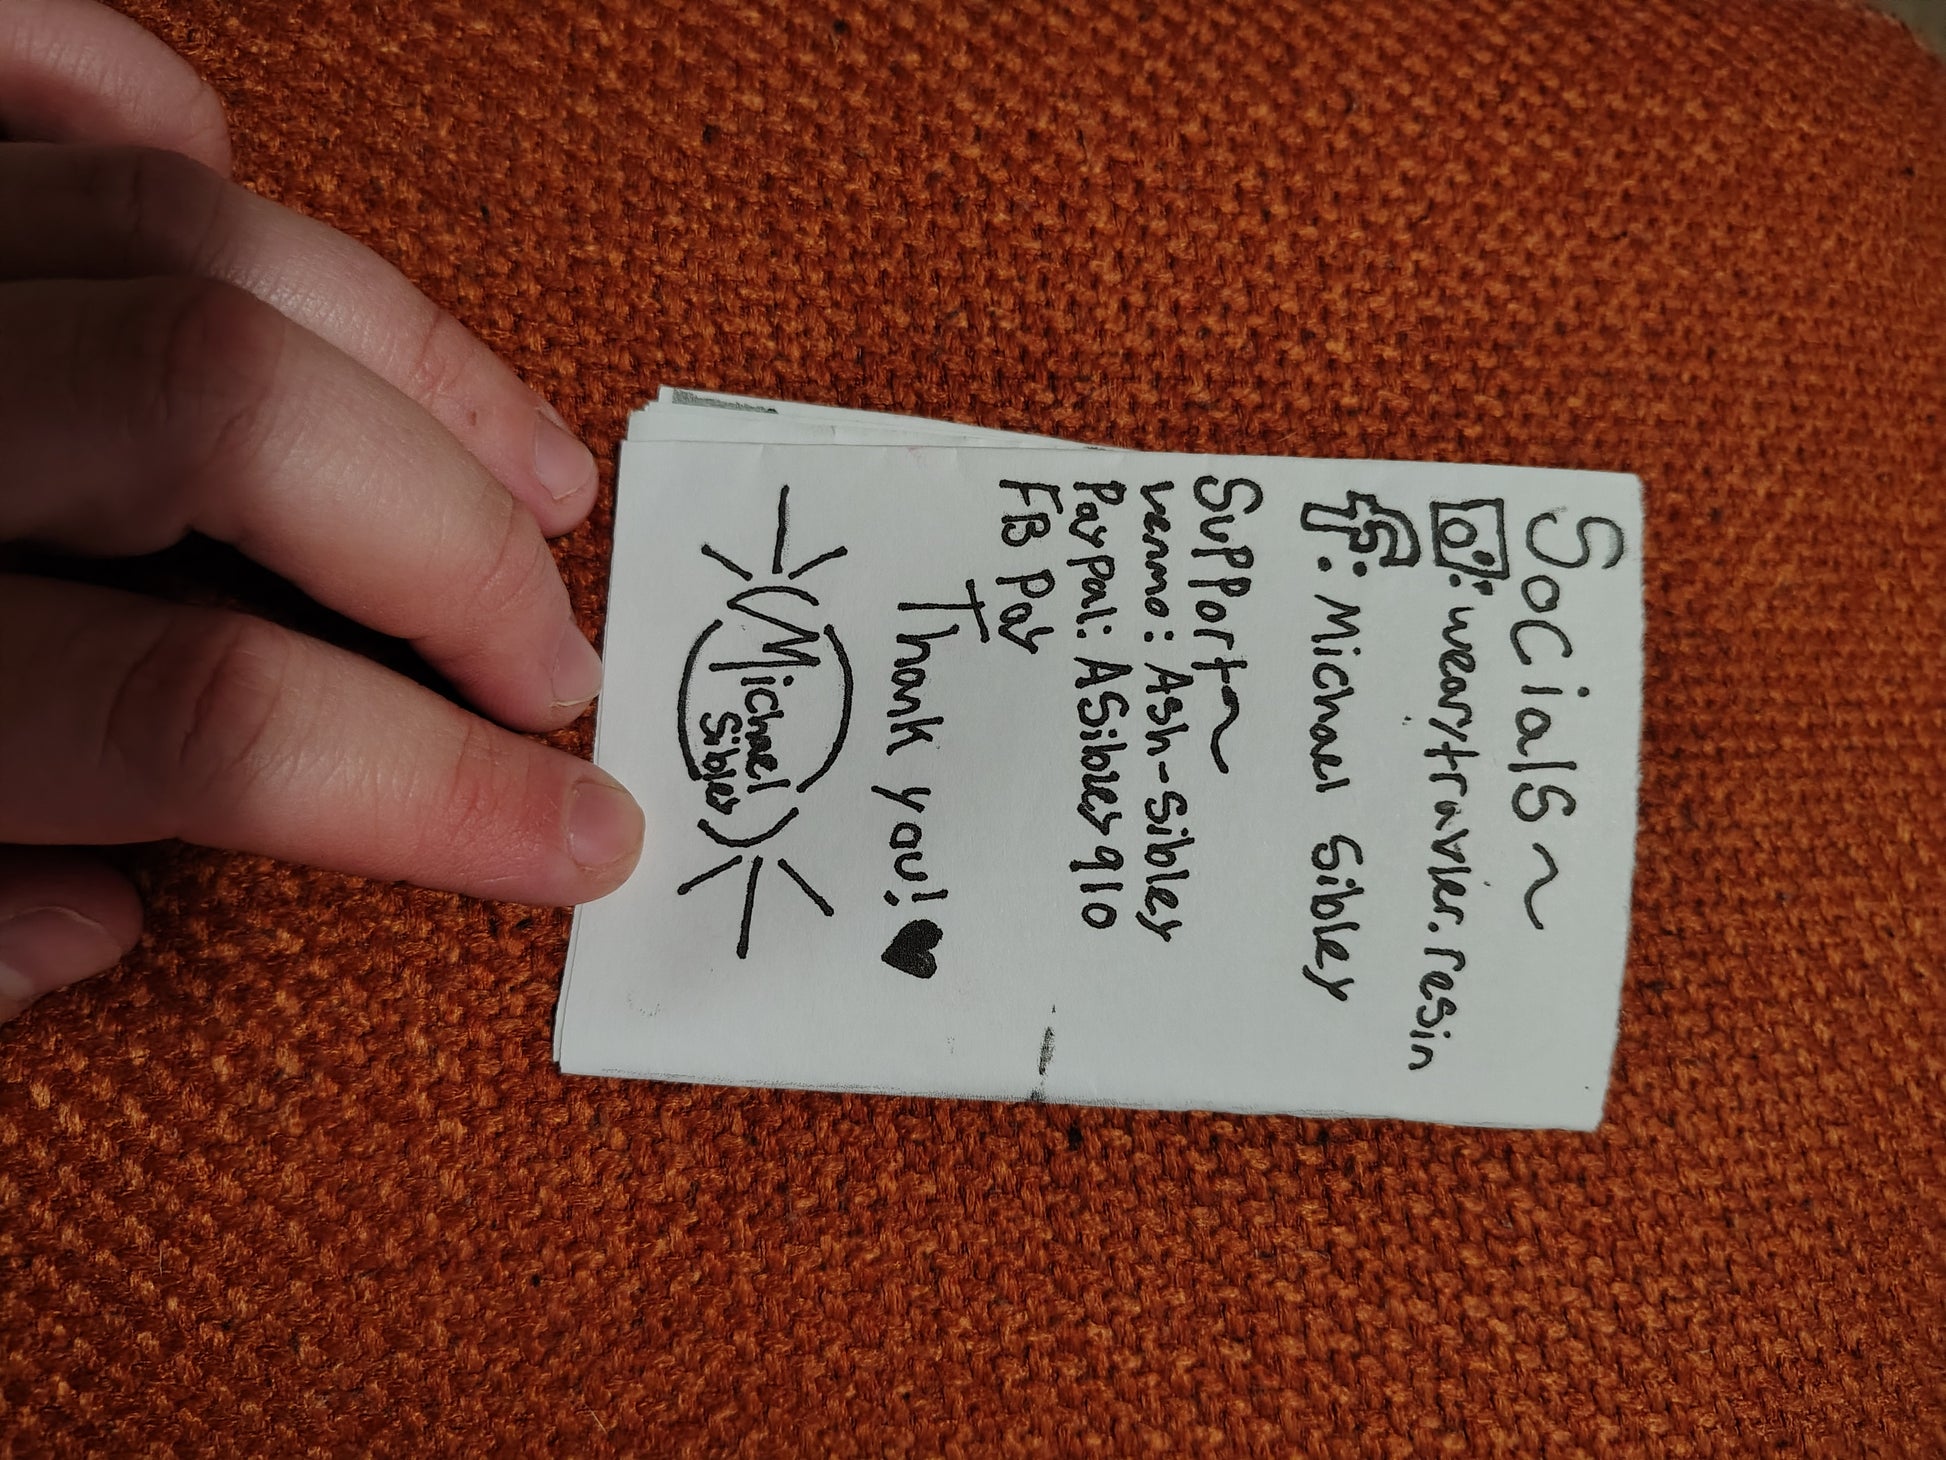 Socials ~
: wearytravler.resin
: Michael Sibley
Support ~
venmo: Ash-Sibley
Paypal: ASibley910
FB Pay
Thank you! ♥
Michael
Sibley